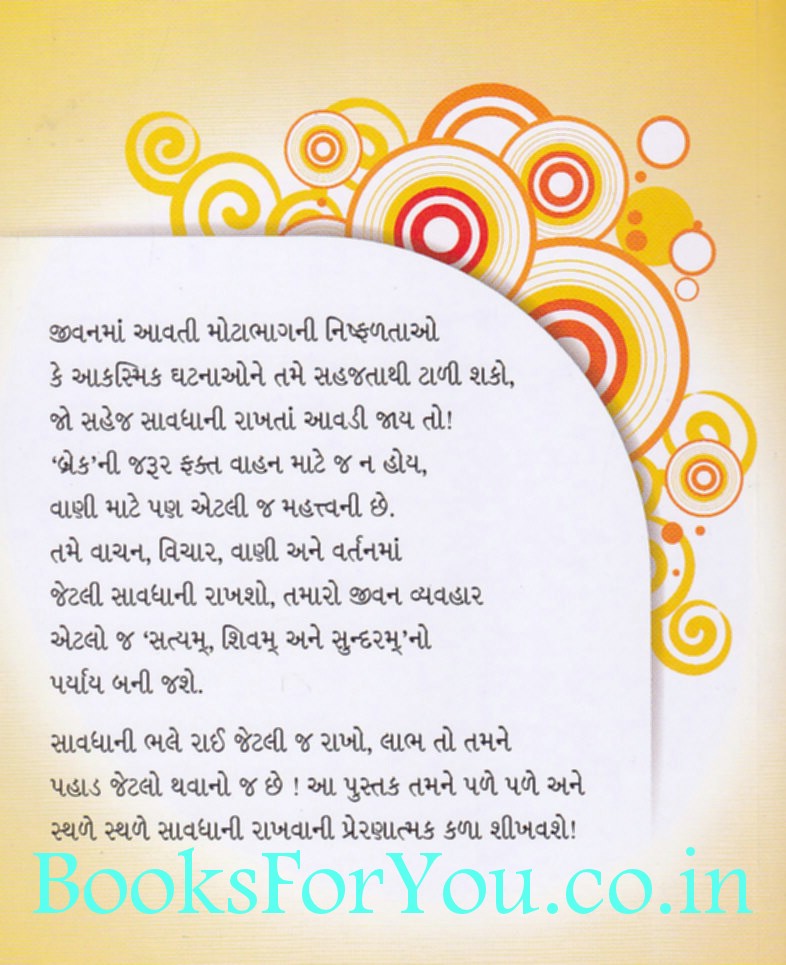 જીવનમાં આવતી મોટાભાગની નિષ્ફળતાઓ
કે આકસ્મિક ઘટનાઓને તમે સહજતાથી ટાળી શકો,
જો સહેજ સાવધાની રાખતાં આવડી જાય તો!
‘બ્રેક’ની જરૂર ફક્ત વાહન માટે જ ન હોય,
વાણી માટે પણ એટલી જ મહત્ત્વની છે.
તમે વાચન, વિચાર, વાણી અને વર્તનમાં
જેટલી સાવધાની રાખશો, તમારો જીવન વ્યવહાર
એટલો જ ‘સત્યમ્, શિવમ્ અને સુન્દરમ્’નો
પર્યાય બની જશે.
સાવધાની ભલે રાઈ જેટલી જ રાખો, લાભ તો તમને
પહાડ જેટલો થવાનો જ છે ! આ પુસ્તક તમને પળે પળે અને
સ્થળે સ્થળે સાવધાની રાખવાની પ્રેરણાત્મક કળા શીખવશે!
BooksForYou.co.in